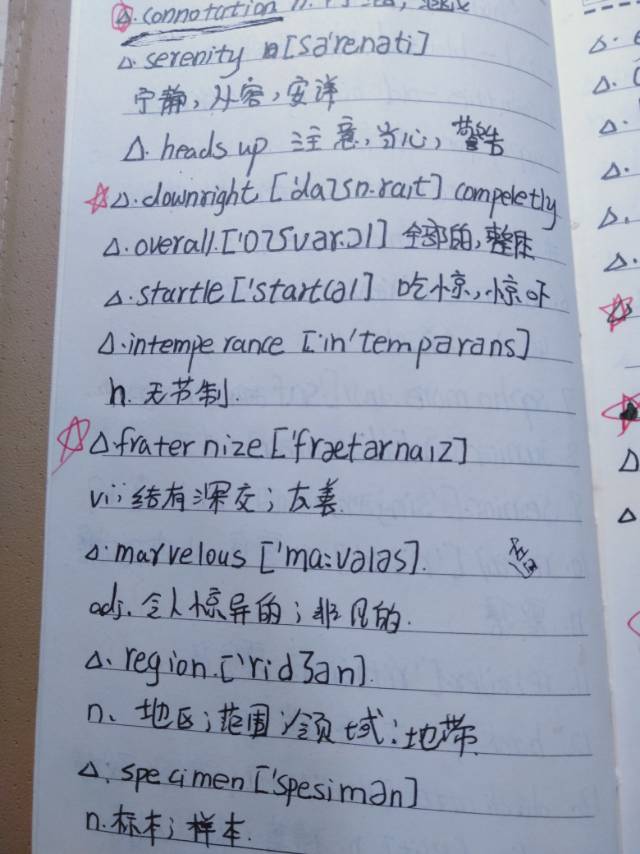 △. connotation n.
△. serenity n [sə'renəti]
宁静,从容,安详
△. heads up 注意,当心,警告
☆△. downright ['daʊn.raɪt] compeletly
△. overall. ['oʊvər.ɔl] 全部的,整体
△. startle ['start(ə)l] 吃惊,惊吓
△. intemperance [.in'tempərəns]
n. 无节制.
☆△ fraternize ['frætərnaɪz]
vi; 结有深交; 友善.
△. marvelous ['ma:vələs].
adj. 令人惊异的; 非凡的.
△. region. ['ridʒən].
n. 地区; 范围; 领域; 地带.
△. specimen ['spesimən]
n. 标本; 样本.